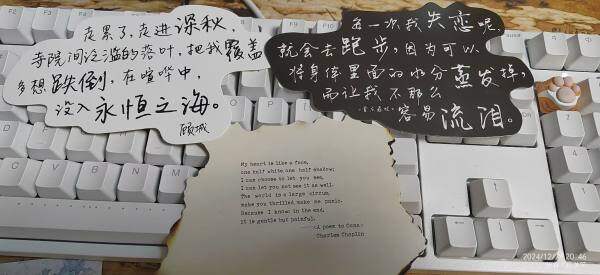 走累了,走进深秋
寺院间泛滥的落叶,把我覆盖
多想跌倒,在喧哗中,
没入永恒之海。
顾城
每一次我失恋呢,
就会去跑步,因为可以
将身体里面的水分蒸发掉,
而让我不那么
容易流泪。
My heart is like a face,
one half white one half shadow;
I can choose to let you see,
I can let you not see it as well.
The world is a large circus,
make you thrilled make me panic.
Because I know in the end,
it is gentle but painful.
A poem to Oona
Charles Chaplin
20:46